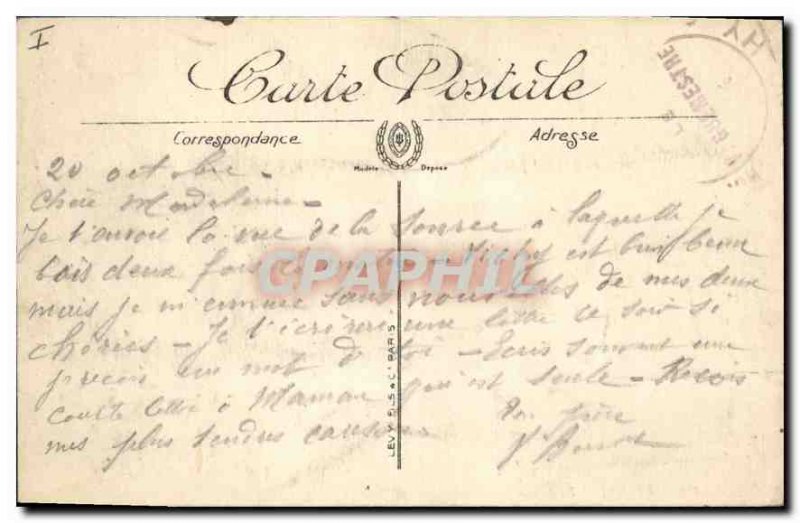 I
Carte Postale
Correspondance
Adresse
Modèle Déposé
20 octobre -
Chère Madeleine -
Je t'envoie la vue de la source à laquelle je
bois deux fois Vichy est bien beau
mais je m'ennuie sans nouvelles de mes deux
chéries - Je t'écrirai une lettre ce soir si
je reçois un mot de toi - Ecris souvent une
courte lettre à Maman qui est seule - Reçois
mes plus tendres caresses
Ton père
LEVY FILS & Cie PARIS
CPAPHIL